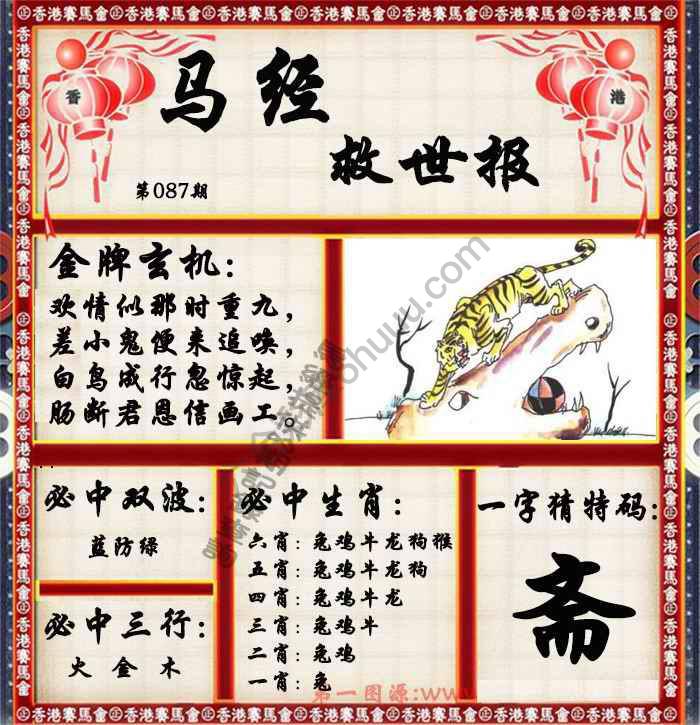 香港賽馬會
香
港
马经
救世报
第087期
金牌玄机：
欢情似那时重九，
差小鬼便来追唤，
白鸟成行忽惊起，
肠断君恩信画工。
必中双波：
蓝防绿
必中三行：
火 金 木
必中生肖：
六肖：兔鸡牛龙狗猴
五肖：兔鸡牛龙狗
四肖：兔鸡牛龙
三肖：兔鸡牛
二肖：兔鸡
一肖：兔
一字猜特码：
斋
第一图源:www